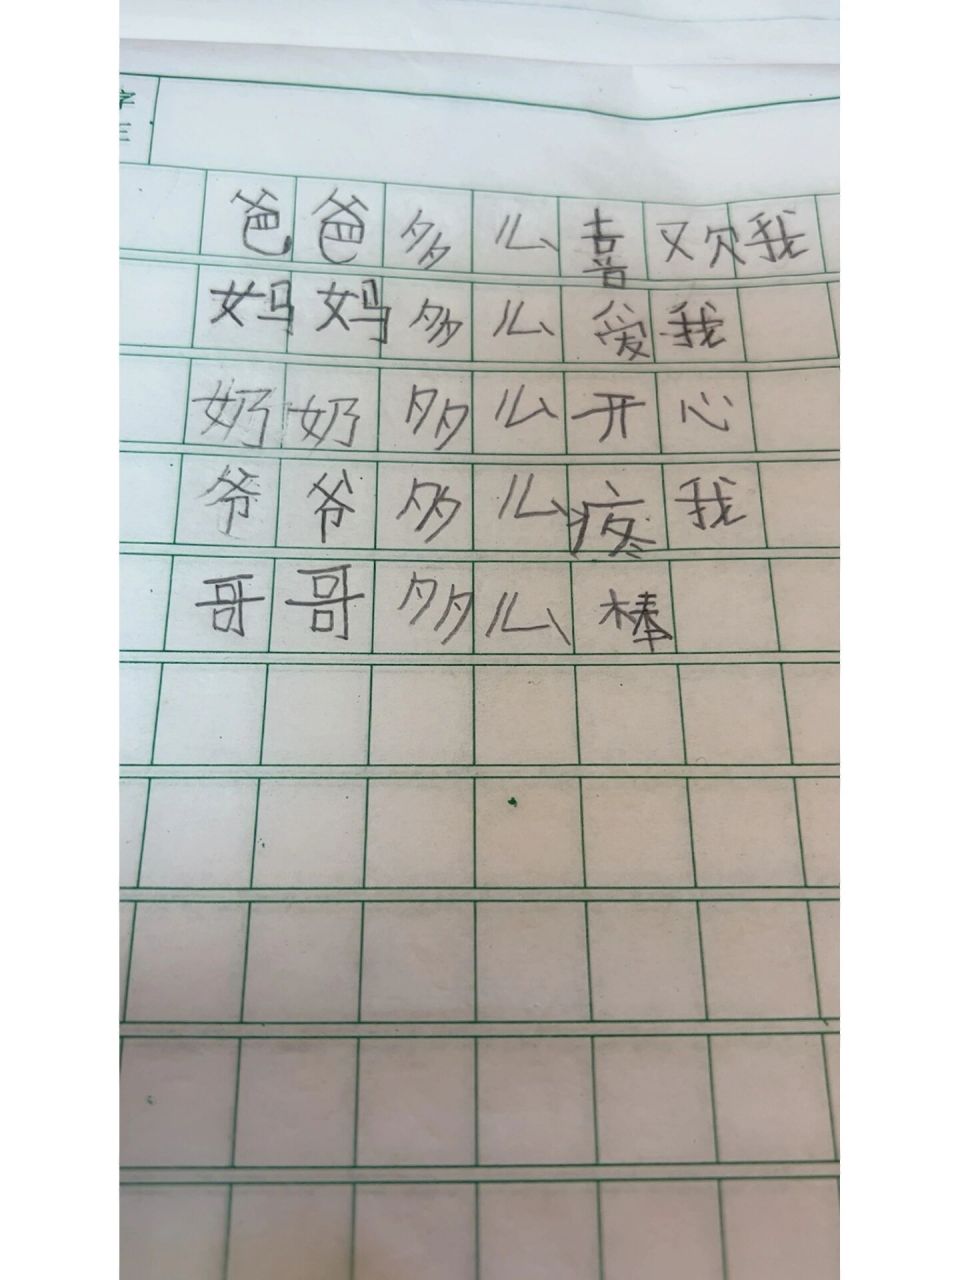 爸爸多么喜欢我
妈妈多么爱我
奶奶多么开心
爷爷多么疼我
哥哥多么棒